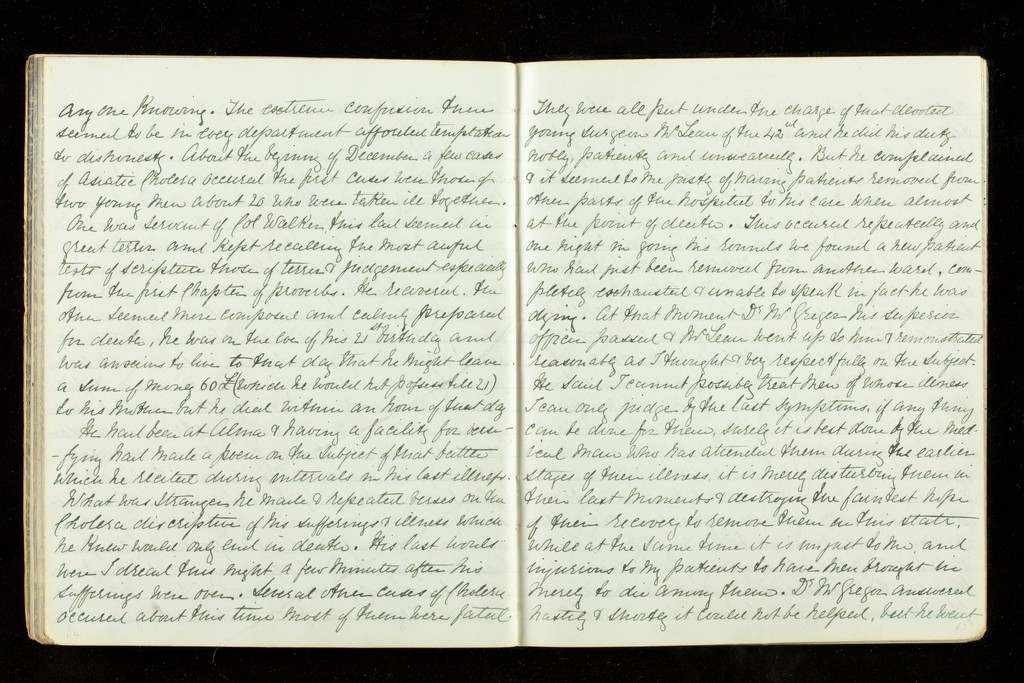 any one Knowing. The extreme confusion there
seemed to be in every department afforded temptation
to dishonesty. About the begining of December a few cases
of Asiatic Cholera occured the first cases were those of
two young men about 20 who were taken ill together.
One was servant of Col Walker, this lad seemed in
great terror and kept recalling the most awful
texts of scripture those of terror & judgement especially
from the first Chapter of proverbs. He recovered. the
other seemed more composed and calmly prepared
for death, he was on the eve of his 21st birthday and
was anxious to live to that day that he might leave
a sum of money 60£ (which he would not possess till 21)
to his mother but he died within an hour of that day
He had been at Alma & having a facility for versi-
-fying had made a poem on the subject of that battle
which he recited during intervals in his last illness.
What was stranger he made & repeated verses on the
Cholera discriptive of his sufferings & illness which
he knew would only end in death. His last words
were I dread this night a few minutes after his
sufferings were over. Several other cases of Cholera
occured about this time most of them were fatal.
They were all put under the charge of that devoted
young surgeon Mr Lean of the 42nd and he did his duty
nobly, patiently and unweariedly. But he complained
& it seemed to me justly of having patients removed from
other parts of the hospital to his care when almost
at the point of death. This occured repeatedly and
one night in going his rounds we found a new patient
who had just been removed from another ward, com-
pletely exhausted & unable to speak in fact he was
dying. At that moment Dr McGregor his superior
officer passed & Mr Lean went up to him & remonstrated
reasonably as I thought & very respectfully on the subject.
He said I cannot possibly treat men of whose illness
I can only judge by the last symptoms, if any thing
can be done for them, surely it is best done by the med-
ical man who has attended them during the earlier
stages of their illness, it is merely disturbing them in
their last moments & destroying the faintest hope
of their recovery to remove them in this state,
while at the same time it is unjust to me, and
injurious to my patients to have men brought in
merely to die among them. Dr McGregor answered
hastily & shortly it could not be helped, but he went